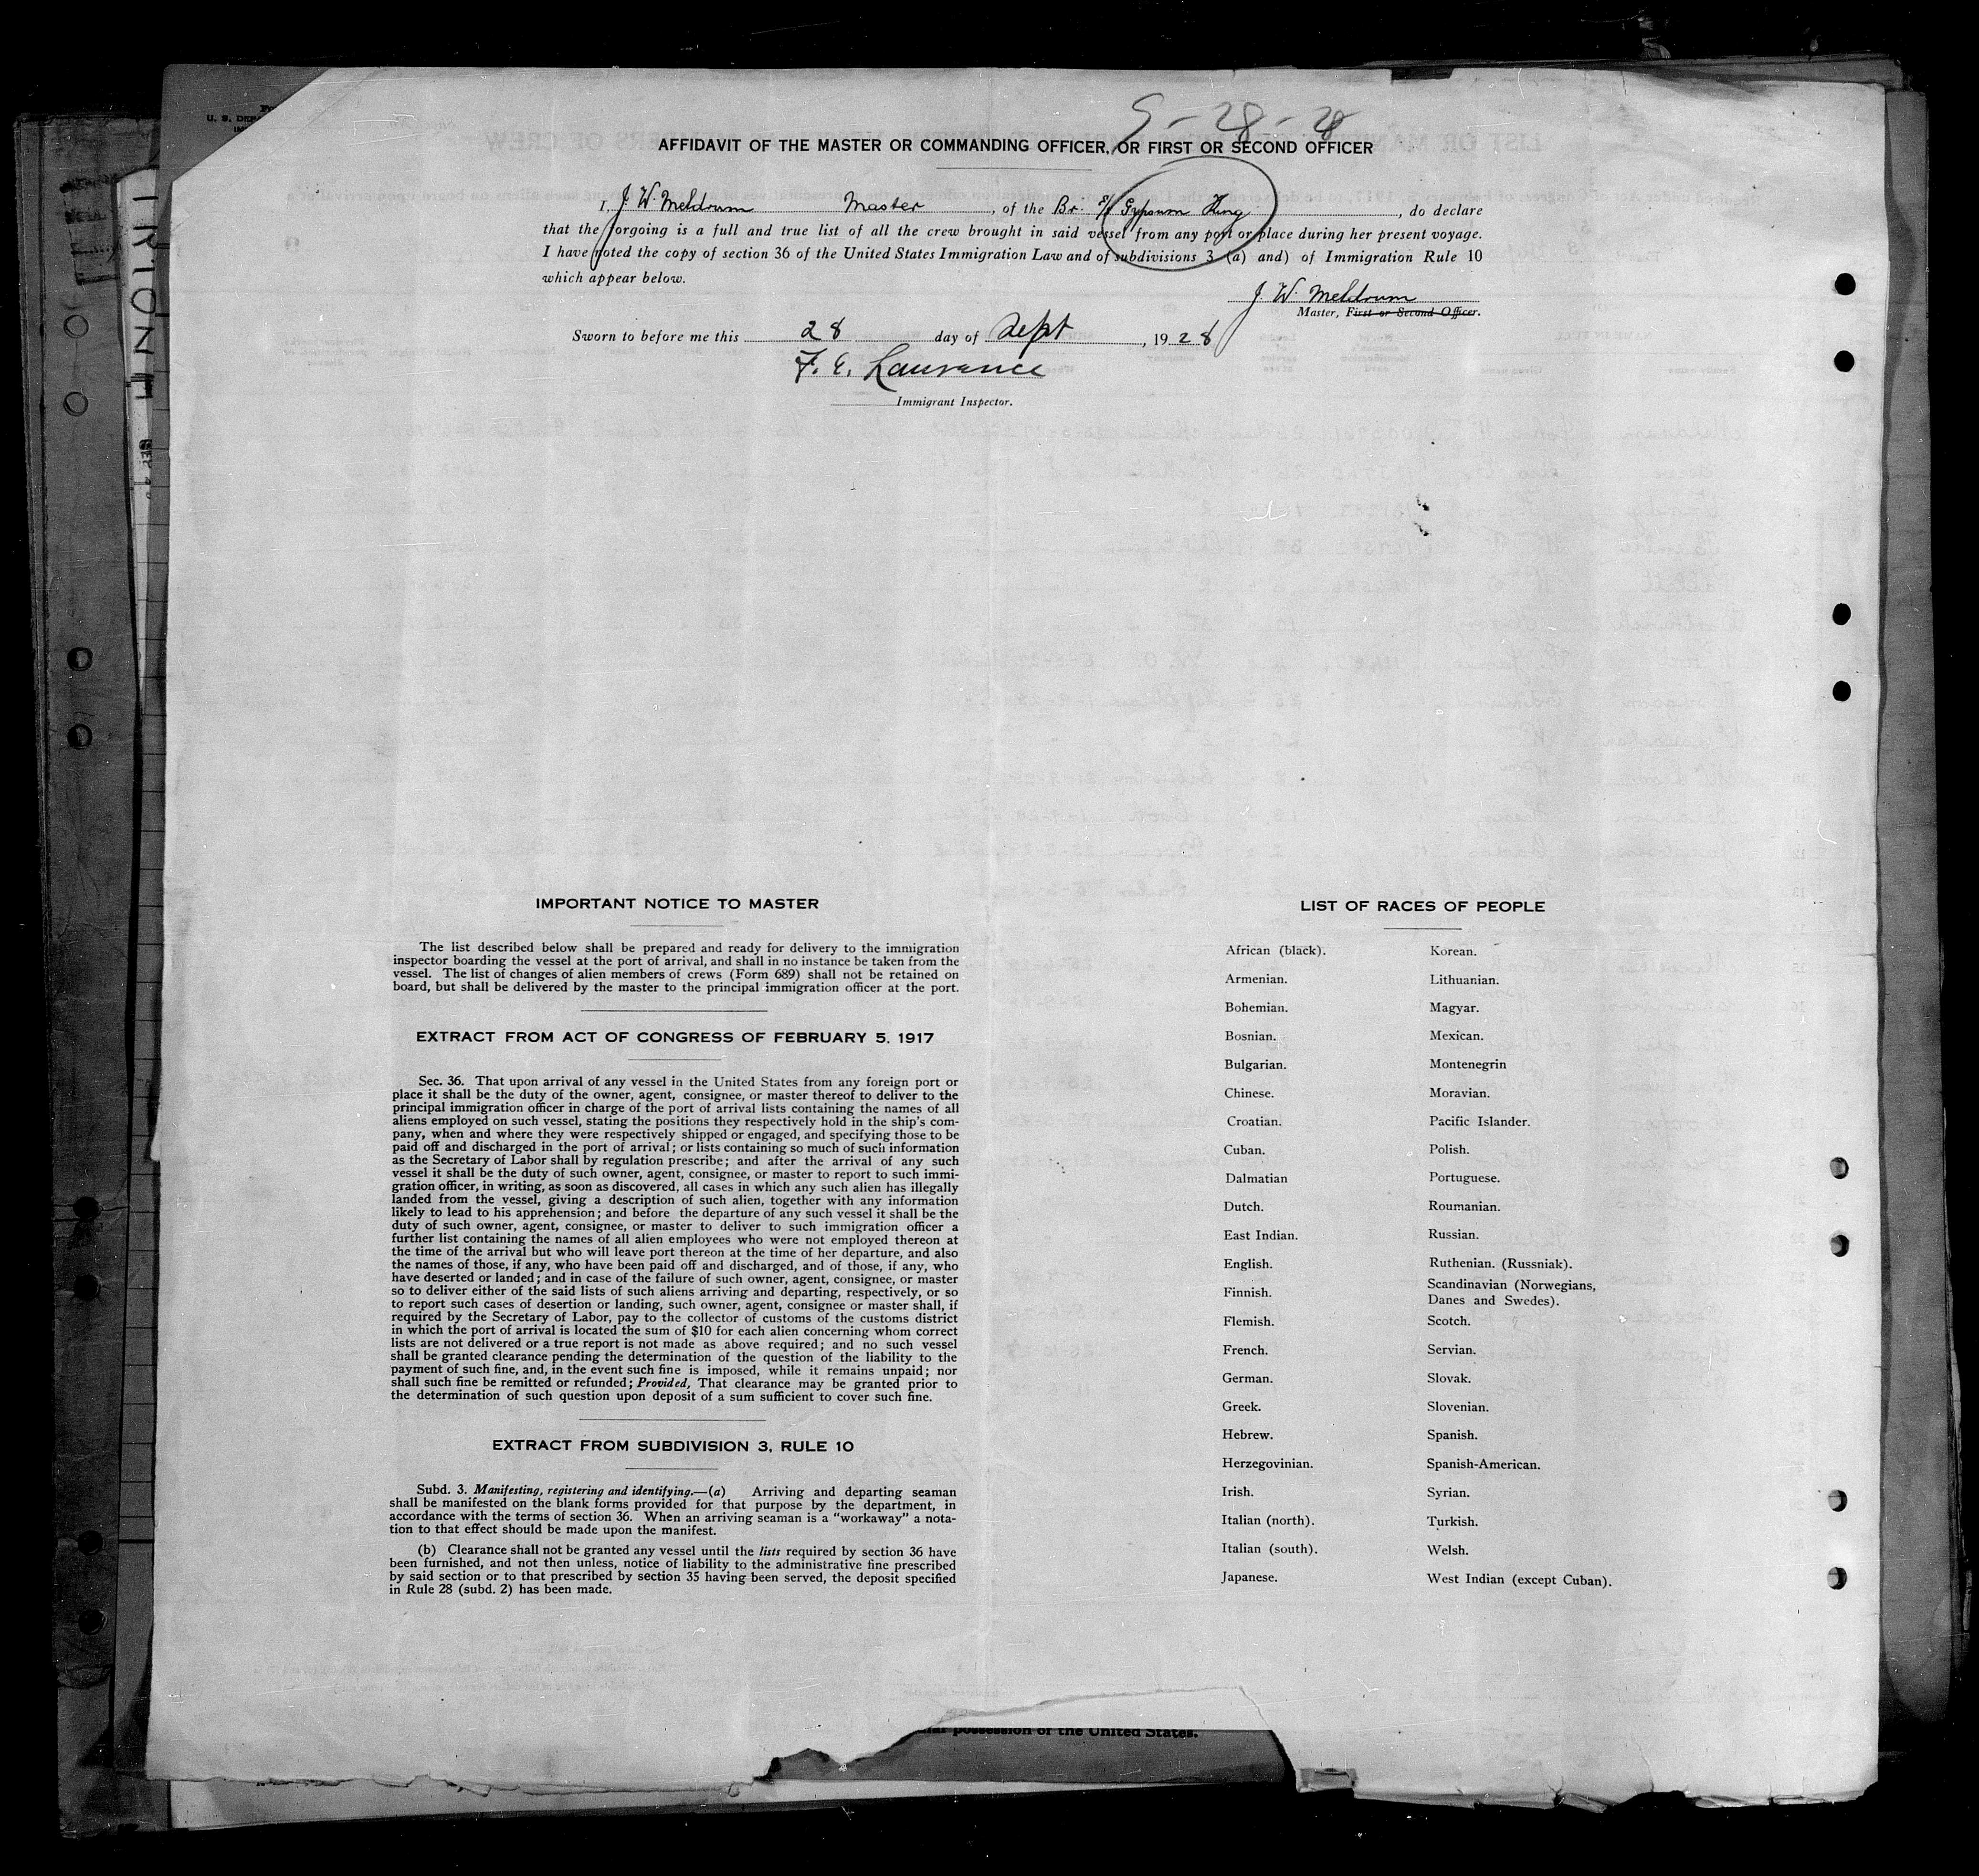 9-28-28
AFFIDAVIT OF THE MASTER OR COMMANDING OFFICER, OR FIRST OR SECOND OFFICER
I, J. W. Meldrum Master, of the Br. S/S Gypsum King, do declare
that the forgoing is a full and true list of all the crew brought in said vessel from any port or place during her present voyage.
I have noted the copy of section 36 of the United States Immigration Law and of subdivisions 3 (a) and) of Immigration Rule 10
which appear below.
J. W. Meldrum
Master, First or Second Officer.
Sworn to before me this 28 day of Sept, 1928
F. E. Laurance
Immigrant Inspector.
IMPORTANT NOTICE TO MASTER
The list described below shall be prepared and ready for delivery to the immigration
inspector boarding the vessel at the port of arrival, and shall in no instance be taken from the
vessel. The list of changes of alien members of crews (Form 689) shall not be retained on
board, but shall be delivered by the master to the principal immigration officer at the port.
EXTRACT FROM ACT OF CONGRESS OF FEBRUARY 5, 1917
Sec. 36. That upon arrival of any vessel in the United States from any foreign port or
place it shall be the duty of the owner, agent, consignee, or master thereof to deliver to the
principal immigration officer in charge of the port of arrival lists containing the names of all
aliens employed on such vessel, stating the positions they respectively hold in the ship's com-
pany, when and where they were respectively shipped or engaged, and specifying those to be
paid off and discharged in the port of arrival; or lists containing so much of such information
as the Secretary of Labor shall by regulation prescribe; and after the arrival of any such
vessel it shall be the duty of such owner, agent, consignee, or master to report to such immi-
gration officer, in writing, as soon as discovered, all cases in which any such alien has illegally
landed from the vessel, giving a description of such alien, together with any information
likely to lead to his apprehension; and before the departure of any such vessel it shall be the
duty of such owner, agent, consignee, or master to deliver to such immigration officer a
further list containing the names of all alien employees who were not employed thereon at
the time of the arrival but who will leave port thereon at the time of her departure, and also
the names of those, if any, who have been paid off and discharged, and of those, if any, who
have deserted or landed; and in case of the failure of such owner, agent, consignee, or master
so to deliver either of the said lists of such aliens arriving and departing, respectively, or so
to report such cases of desertion or landing, such owner, agent, consignee or master shall, if
required by the Secretary of Labor, pay to the collector of customs of the customs district
in which the port of arrival is located the sum of $10 for each alien concerning whom correct
lists are not delivered or a true report is not made as above required; and no such vessel
shall be granted clearance pending the determination of the question of the liability to the
payment of such fine, and, in the event such fine is imposed, while it remains unpaid; nor
shall such fine be remitted or refunded; Provided, That clearance may be granted prior to
the determination of such question upon deposit of a sum sufficient to cover such fine.
EXTRACT FROM SUBDIVISION 3, RULE 10
Subd. 3. Manifesting, registering and identifying.—(a) Arriving and departing seaman
shall be manifested on the blank forms provided for that purpose by the department, in
accordance with the terms of section 36. When an arriving seaman is a "workaway" a nota-
tion to that effect should be made upon the manifest.
(b) Clearance shall not be granted any vessel until the lists required by section 36 have
been furnished, and not then unless, notice of liability to the administrative fine prescribed
by said section or to that prescribed by section 35 having been served, the deposit specified
in Rule 28 (subd. 2) has been made.
LIST OF RACES OF PEOPLE
African (black).
Armenian.
Bohemian.
Bosnian.
Bulgarian.
Chinese.
Croatian.
Cuban.
Dalmatian
Dutch.
East Indian.
English.
Finnish.
Flemish.
French.
German.
Greek.
Hebrew.
Herzegovinian.
Irish.
Italian (north).
Italian (south).
Japanese.
Korean.
Lithuanian.
Magyar.
Mexican.
Montenegrin
Moravian.
Pacific Islander.
Polish.
Portuguese.
Roumanian.
Russian.
Ruthenian. (Russniak).
Scandinavian (Norwegians,
Danes and Swedes).
Scotch.
Servian.
Slovak.
Slovenian.
Spanish.
Spanish-American.
Syrian.
Turkish.
Welsh.
West Indian (except Cuban).
possession of the United States.